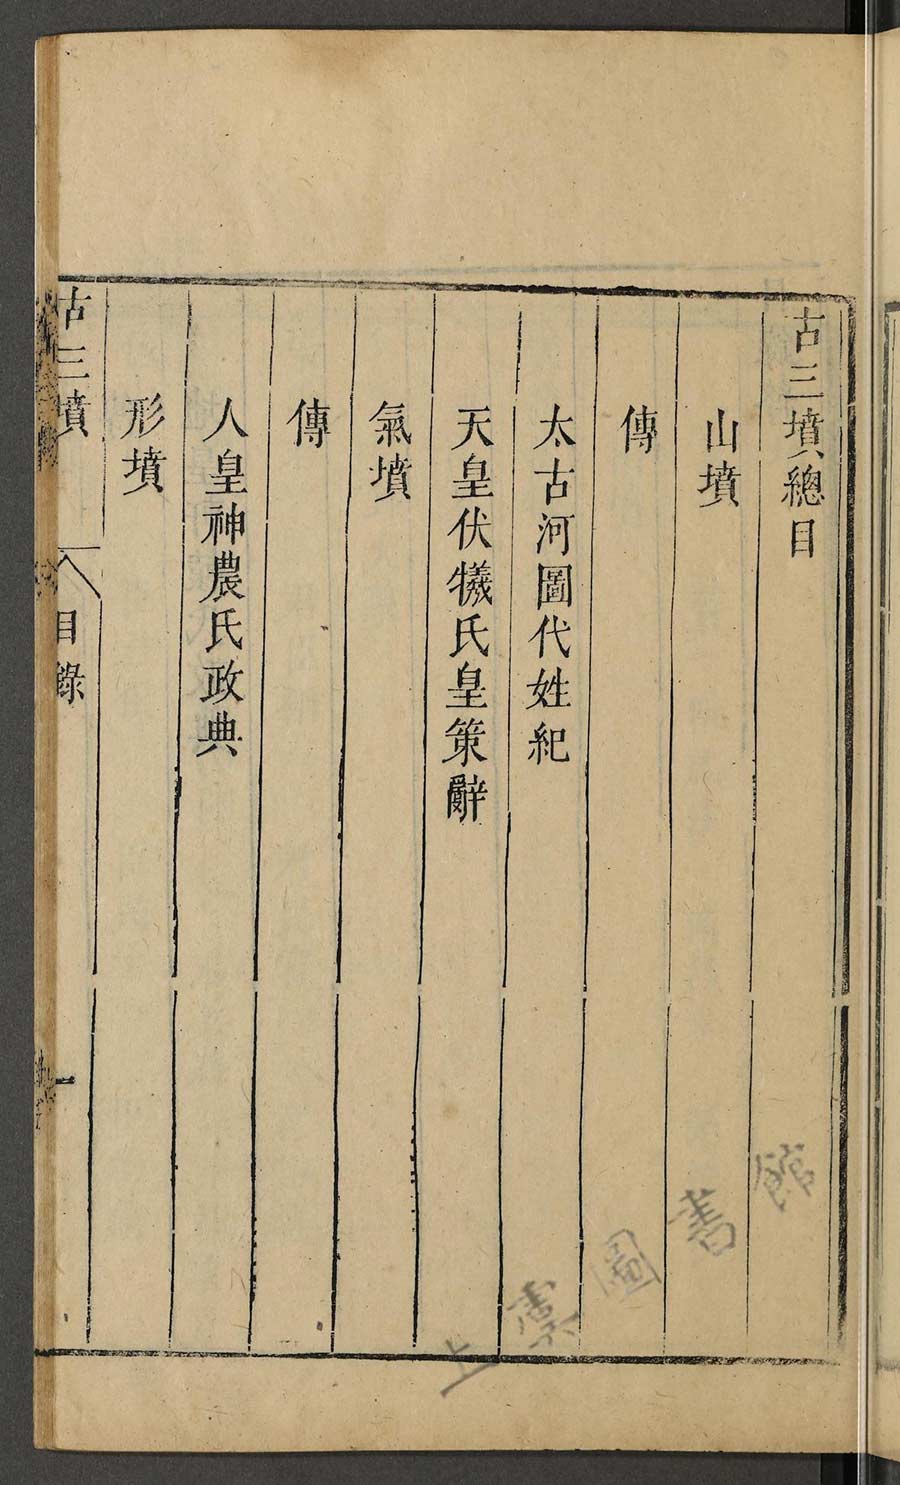 古三墳總目
山墳
傳
太古河圖代姓紀
天皇伏犧氏皇策辭
氣墳
傳
人皇神農氏政典
形墳
古三墳
目錄
一
上虞圖書館